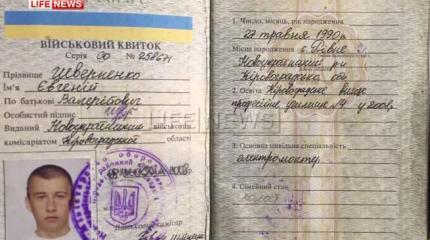 LIFE NEWS
ВІЙСЬКОВИЙ КВИТОК
Серія 00 №
Прізвище Шевериенко
Ім'я Євгеній
По батькові Валерійович
Особистий підпис
Виданий Новоукраїнським військовим
комісаріатом Кіровоградської області
Військовий комісар
1. Число, місяць, рік народження
27 травня 1990 р.
Місце народження с. Рівне
Новоукраїнський р-н
Кіровоградська обл
2. Освіта Кіровоградське вище
професійне училище №4 у 2008 р.
LIFENEWS
3. Основна цивільна спеціальність
електромонтер
4. Сімейний стан
холост